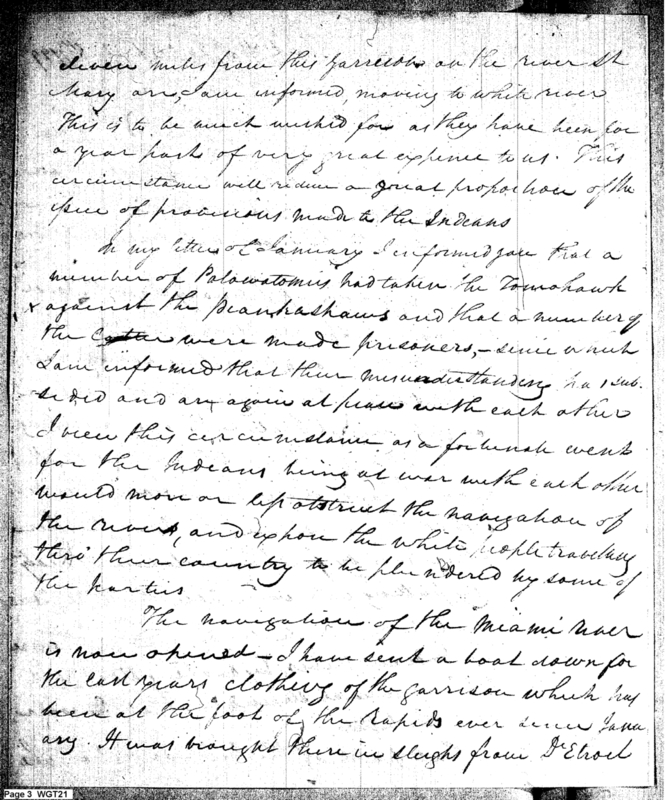 seven miles from this Garrison on the river St
Mary are, I am informed, moving to white river
This is to be much wished for as they have been for
a year past of very great expence to us. This
circumstance will reduce a great proportion of the
issue of provisions made to the Indians
In my letter of January I informed you that a
number of Patawatomies had taken the Tomahawk
x against the Peankashaws and that a number of
the were made prisoners,- since which
I am informed that their misunderstanding has sub-
sided and are again at peace with each other
I view this circumstance as a fortunate event
for the Indians being at war with each other
would more or less obstruct the navigation of
the rivers, and expose the white people travelling
thro' their country to be plundered by some of
the parties
The navigation of the Miami river
is now opened - I have sent a boat down for
the last years clothing of the garrison which has
been at the foot of the Rapids ever since Janu
ary. It was brought there in sleighs from DEtroit
Page 3 WGT21